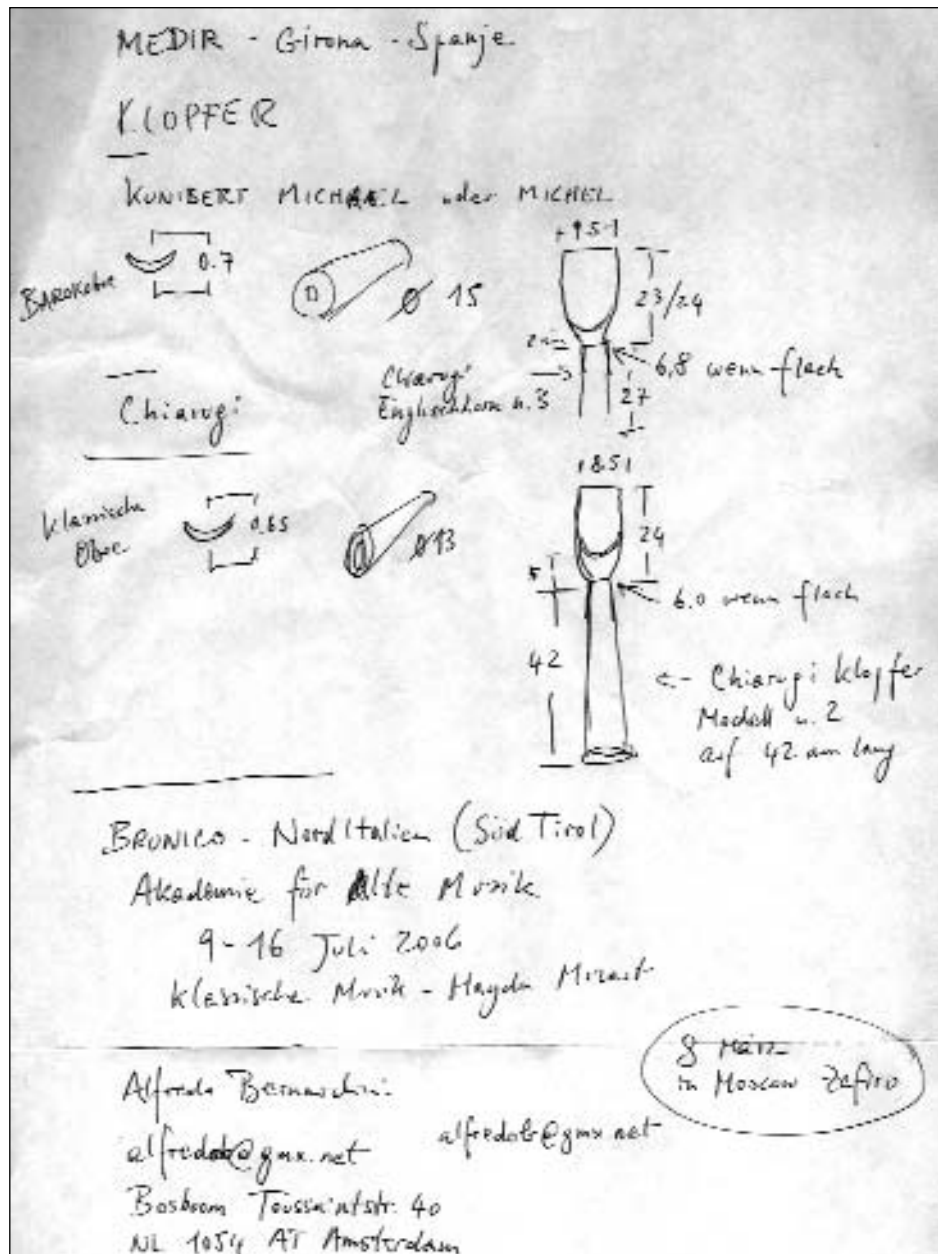 MEDIR - Girona - Spanje
KLOPFER
KUNIBERT MICHAEL oder MICHEL
BAROKoboe
0.7
Ø 15
9.5
23/24
2
6,8 wenn flach
27
Chiarugi
Englischhorn n. 3
Chiarugi
Klassische
Oboe
0,65
Ø 13
8.5
24
5
6.0 wenn flach
42
← Chiarugi Klopfer
Modell n. 2
auf 42 mm lang
BRUNICO - Norditalien (Süd Tirol)
Akademie für Alte Musik
9 - 16 Juli 2006
Klassische Musik - Haydn Mozart
8 März
in Moscow Zefiro
Alfredo Bernardini
alfredob@gmx.net
alfredob@gmx.net
Bosboom Toussaintstr. 40
NL 1054 AT Amsterdam